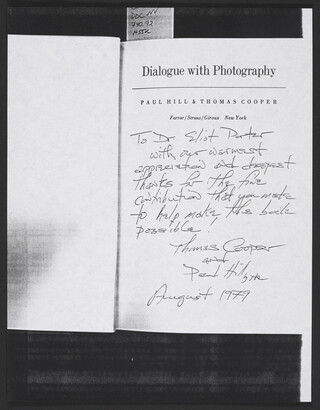 Dialogue with Photography
PAUL HILL & THOMAS COOPER
Farrar/Straus/Giroux New York
To Dr Eliot Porter
with our warmest
appreciation and deepest
thanks for the fine
contribution that you made
to help make this book
possible.
Thomas Cooper
and
Paul Hill
August 1979